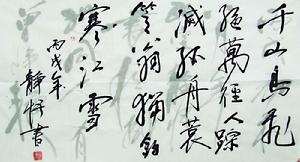 千山鳥飛
絕萬徑人踪
滅孤舟蓑
笠翁獨釣
寒江雪
丙戌年
靜書